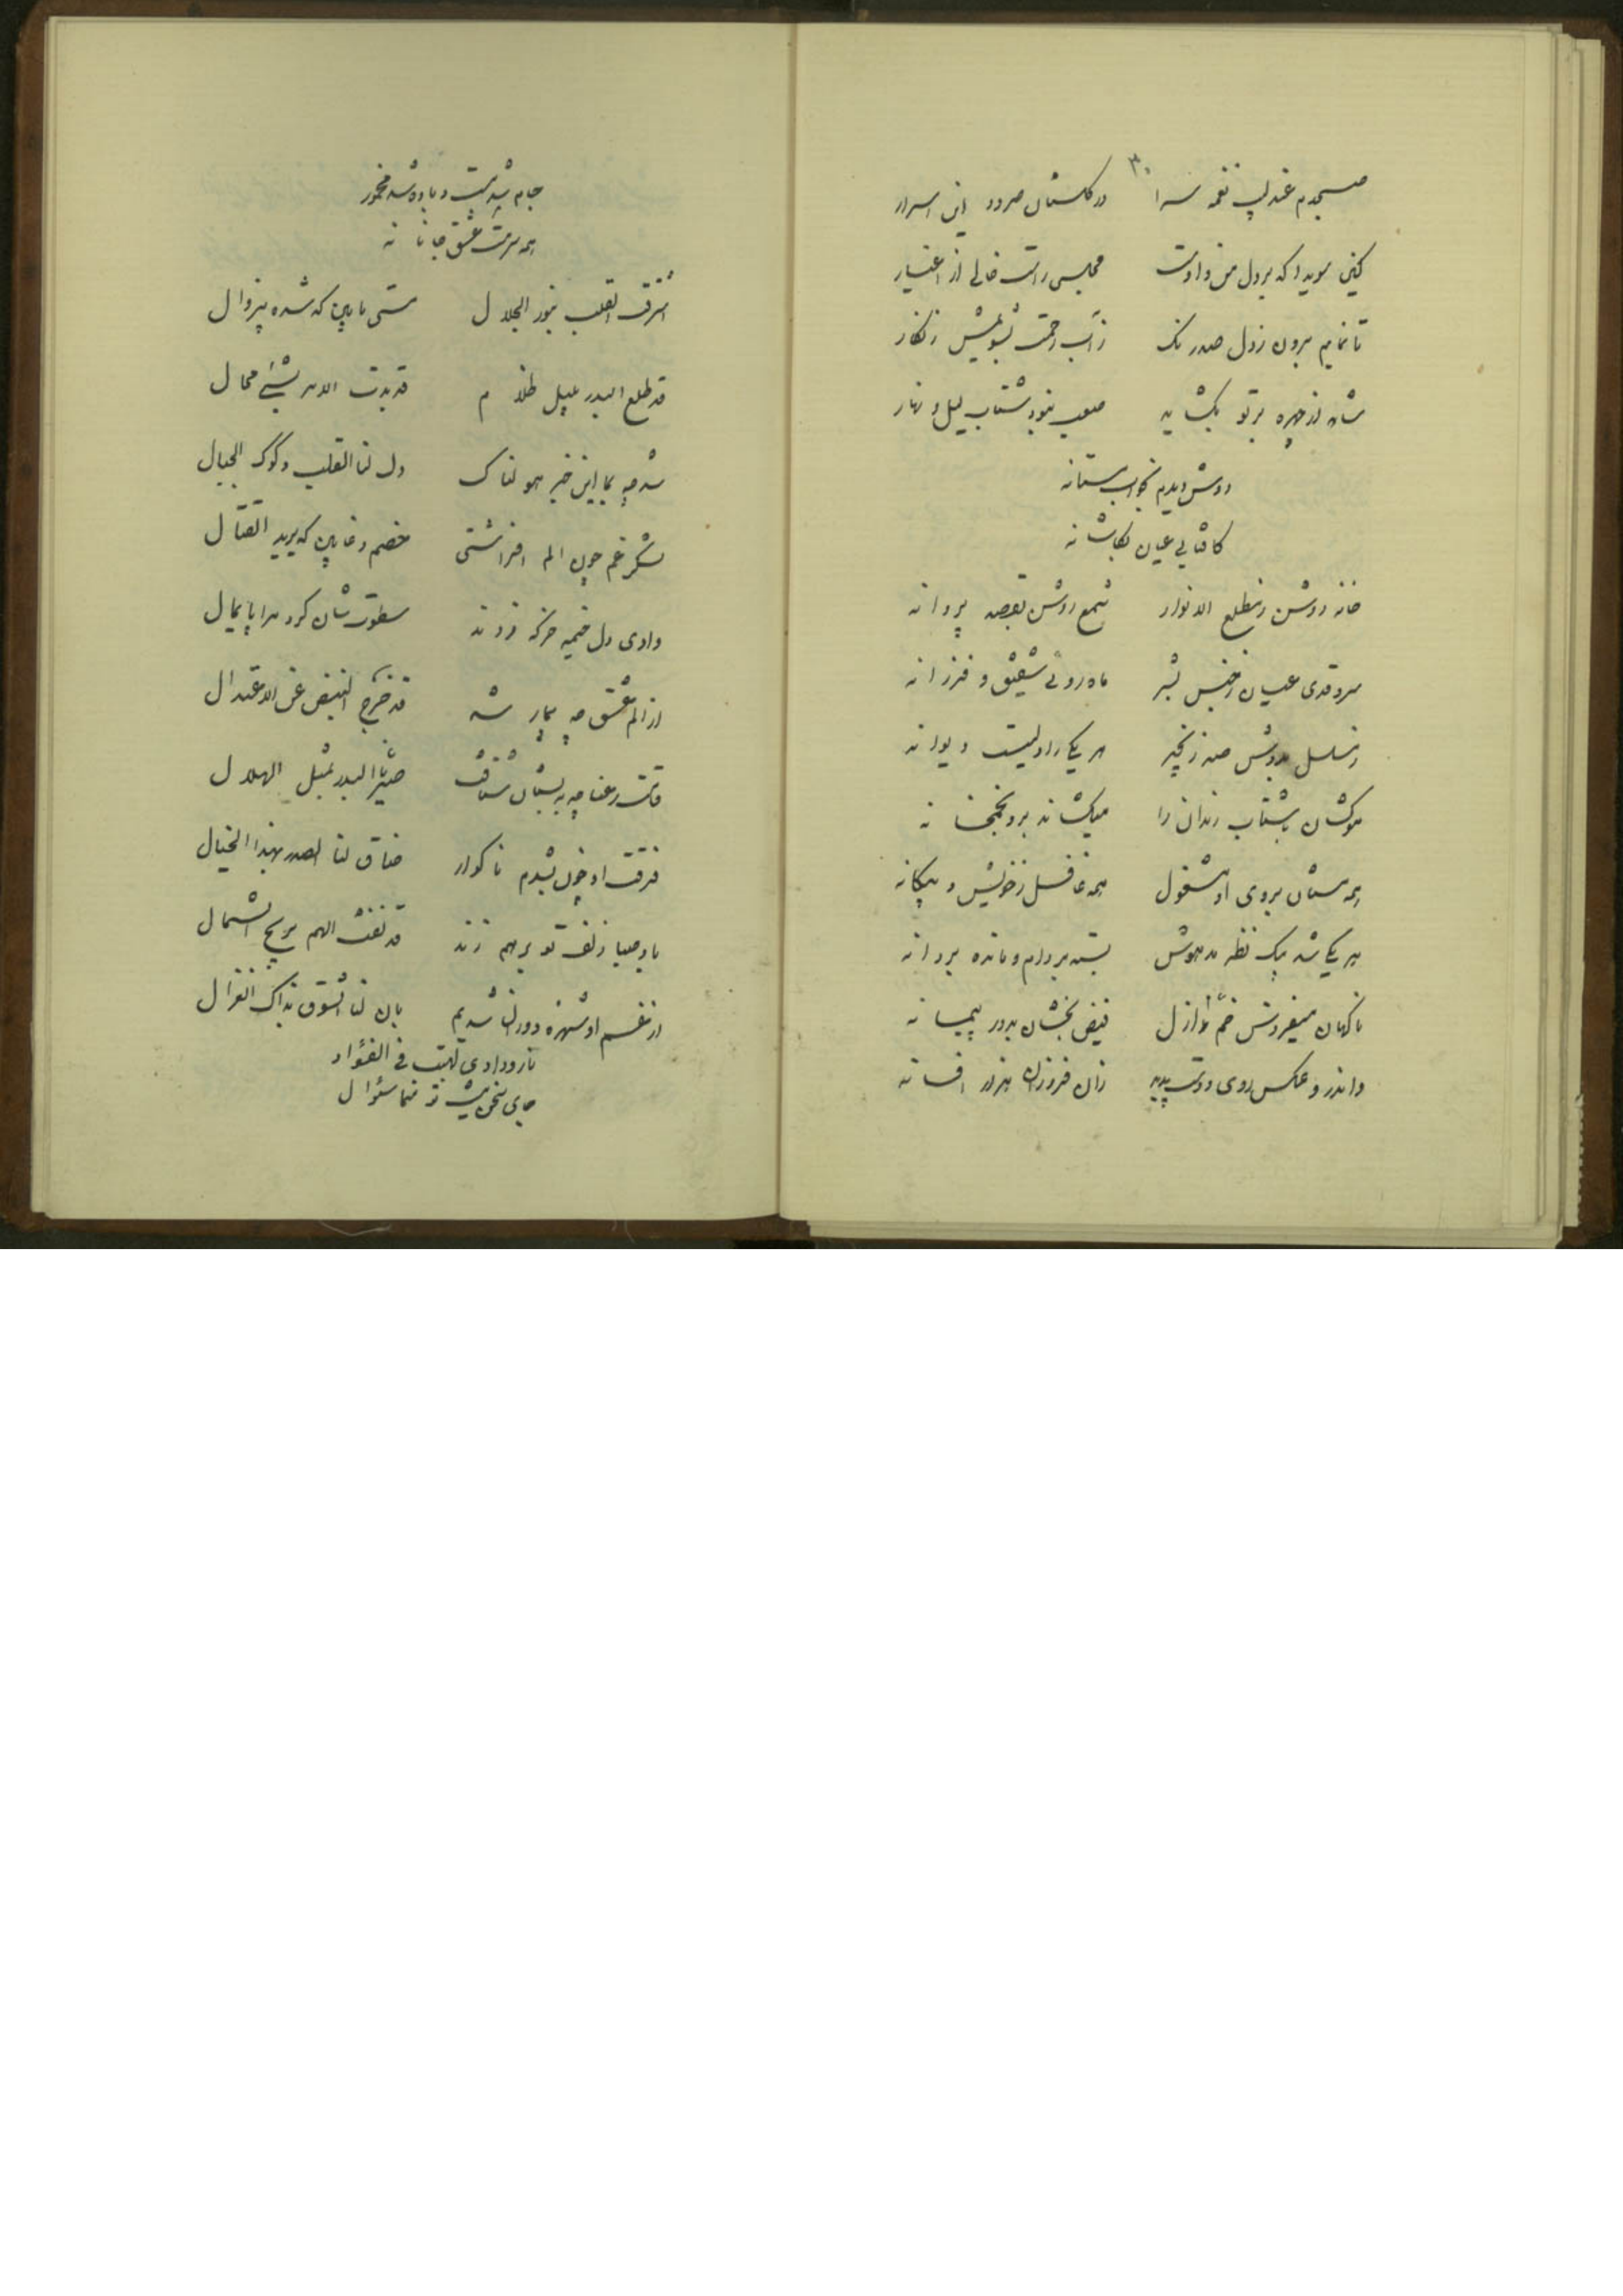 ۳۰
صبحدم عندلیب نغمه سرا در گلستان سرود این اسرار
که بر دل من و اوست مجلس راست خالی از اغیار
تا نمایم برون ز دل صد رنگ ز آب رحمت بشویمش زنگار
شانه از چهره پرتو بگشاید بشتاب لیل و نهار
دوش دیدم بخواب مستانه
کافتابی عیان بکاشانه
خانه روشن ز مطلع الانوار شمع روشن بقصد پروانه
سرو قدی عیان ز جنس بشر ماه روئی شفیق و فرزانه
بدوش صد زنجیر هر یکی را دلیست دیوانه
موکشان باشتاب رندان را میکشاند برو بخمخانه
همه مستان بروی او مشغول همه غافل ز خویش و بیگانه
هر یکی شد بیک نظر مدهوش بسته بر دام و مانده بر دانه
ناگهان میفروش خم ازل فیض بخشان بدور پیمانه
واندرو عکس روی دوست پدید زان فروزان هزار افسانه
جام شد مست و باده شد مخمور
همه سرمست عشق جانانه
اشرقت القلب بنور الجلال مستی ما بین که شده بیزوال
قد طلع البدر بلیل ظلام قد بدت الامر بشیء محال
شد چه بما این خبر هولناک دل لنا القلب و دک الجبال
لشکر غم چون الم افراشتی خصم دغا بین که یرید القتال
وادی دل خیمه و خرگه زدند سطوتشان کرد مرا پایمال
از الم عشق چه بیمار شد قد خرج النبض عن الاعتدال
قامت رعنا چه به بستان شتافت صیرنا البدر بمثل الهلال
فرقت او چون بشدم ناگوار ضاق لنا الصدر بهذا الخیال
باد صبا زلف تو برهم زند قد الهم بریح الشمال
از غم او شهره دوران شدیم بان لنا الشوق بذاک الغزال
نار ودادی لهبت فی الفؤاد
جای سخن نیست سؤال